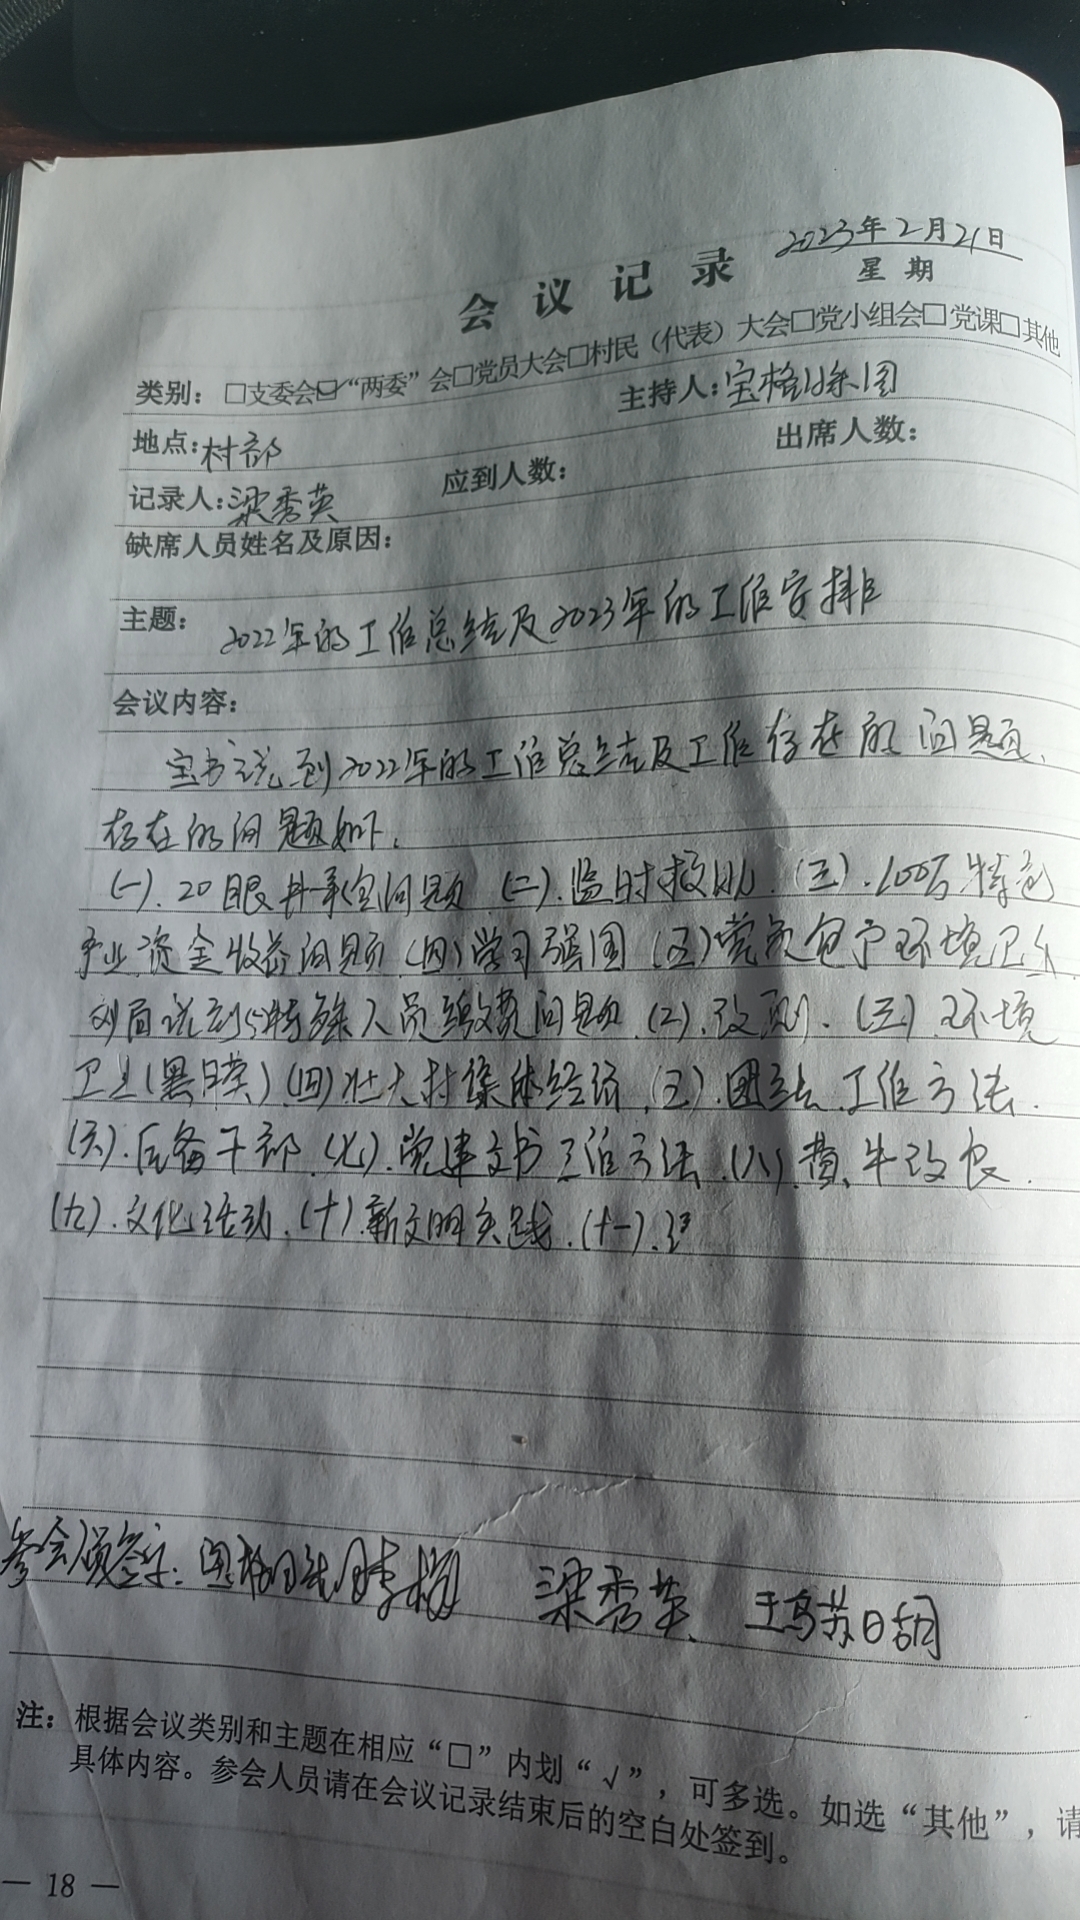 2023年2月21日
会议记录 星期
类别：□支委会☑“两委”会□党员大会□村民（代表）大会□党小组会□党课□其他
地点：村部 主持人：宝格
记录人：梁秀英 应到人数： 出席人数：
缺席人员姓名及原因：
主题：2022年的工作总结及2023年的工作安排
会议内容：
宝书说到2022年的工作总结及工作存在的问题、
存在的问题如下.
(一).20眼井承包问题.(二).临时救助.(三).100万特色
产业.资金收益问题(四)学习强国(五)党员包户环境卫生
刘局说到(一)特殊人员缴费问题.(二).改厕.(三).环境
卫生(黑膜)(四)壮大村集体经济.(五).团结.工作方法.
(六).后备干部.(七).党建文书工作方法.(八).黄牛改良.
(九).文化活动.(十).新文明实践.(十一).
参会人员签字： 梁秀英 王乌苏日胡
注：根据会议类别和主题在相应“□”内划“√”，可多选。如选“其他”，请
具体内容。参会人员请在会议记录结束后的空白处签到。
— 18 —